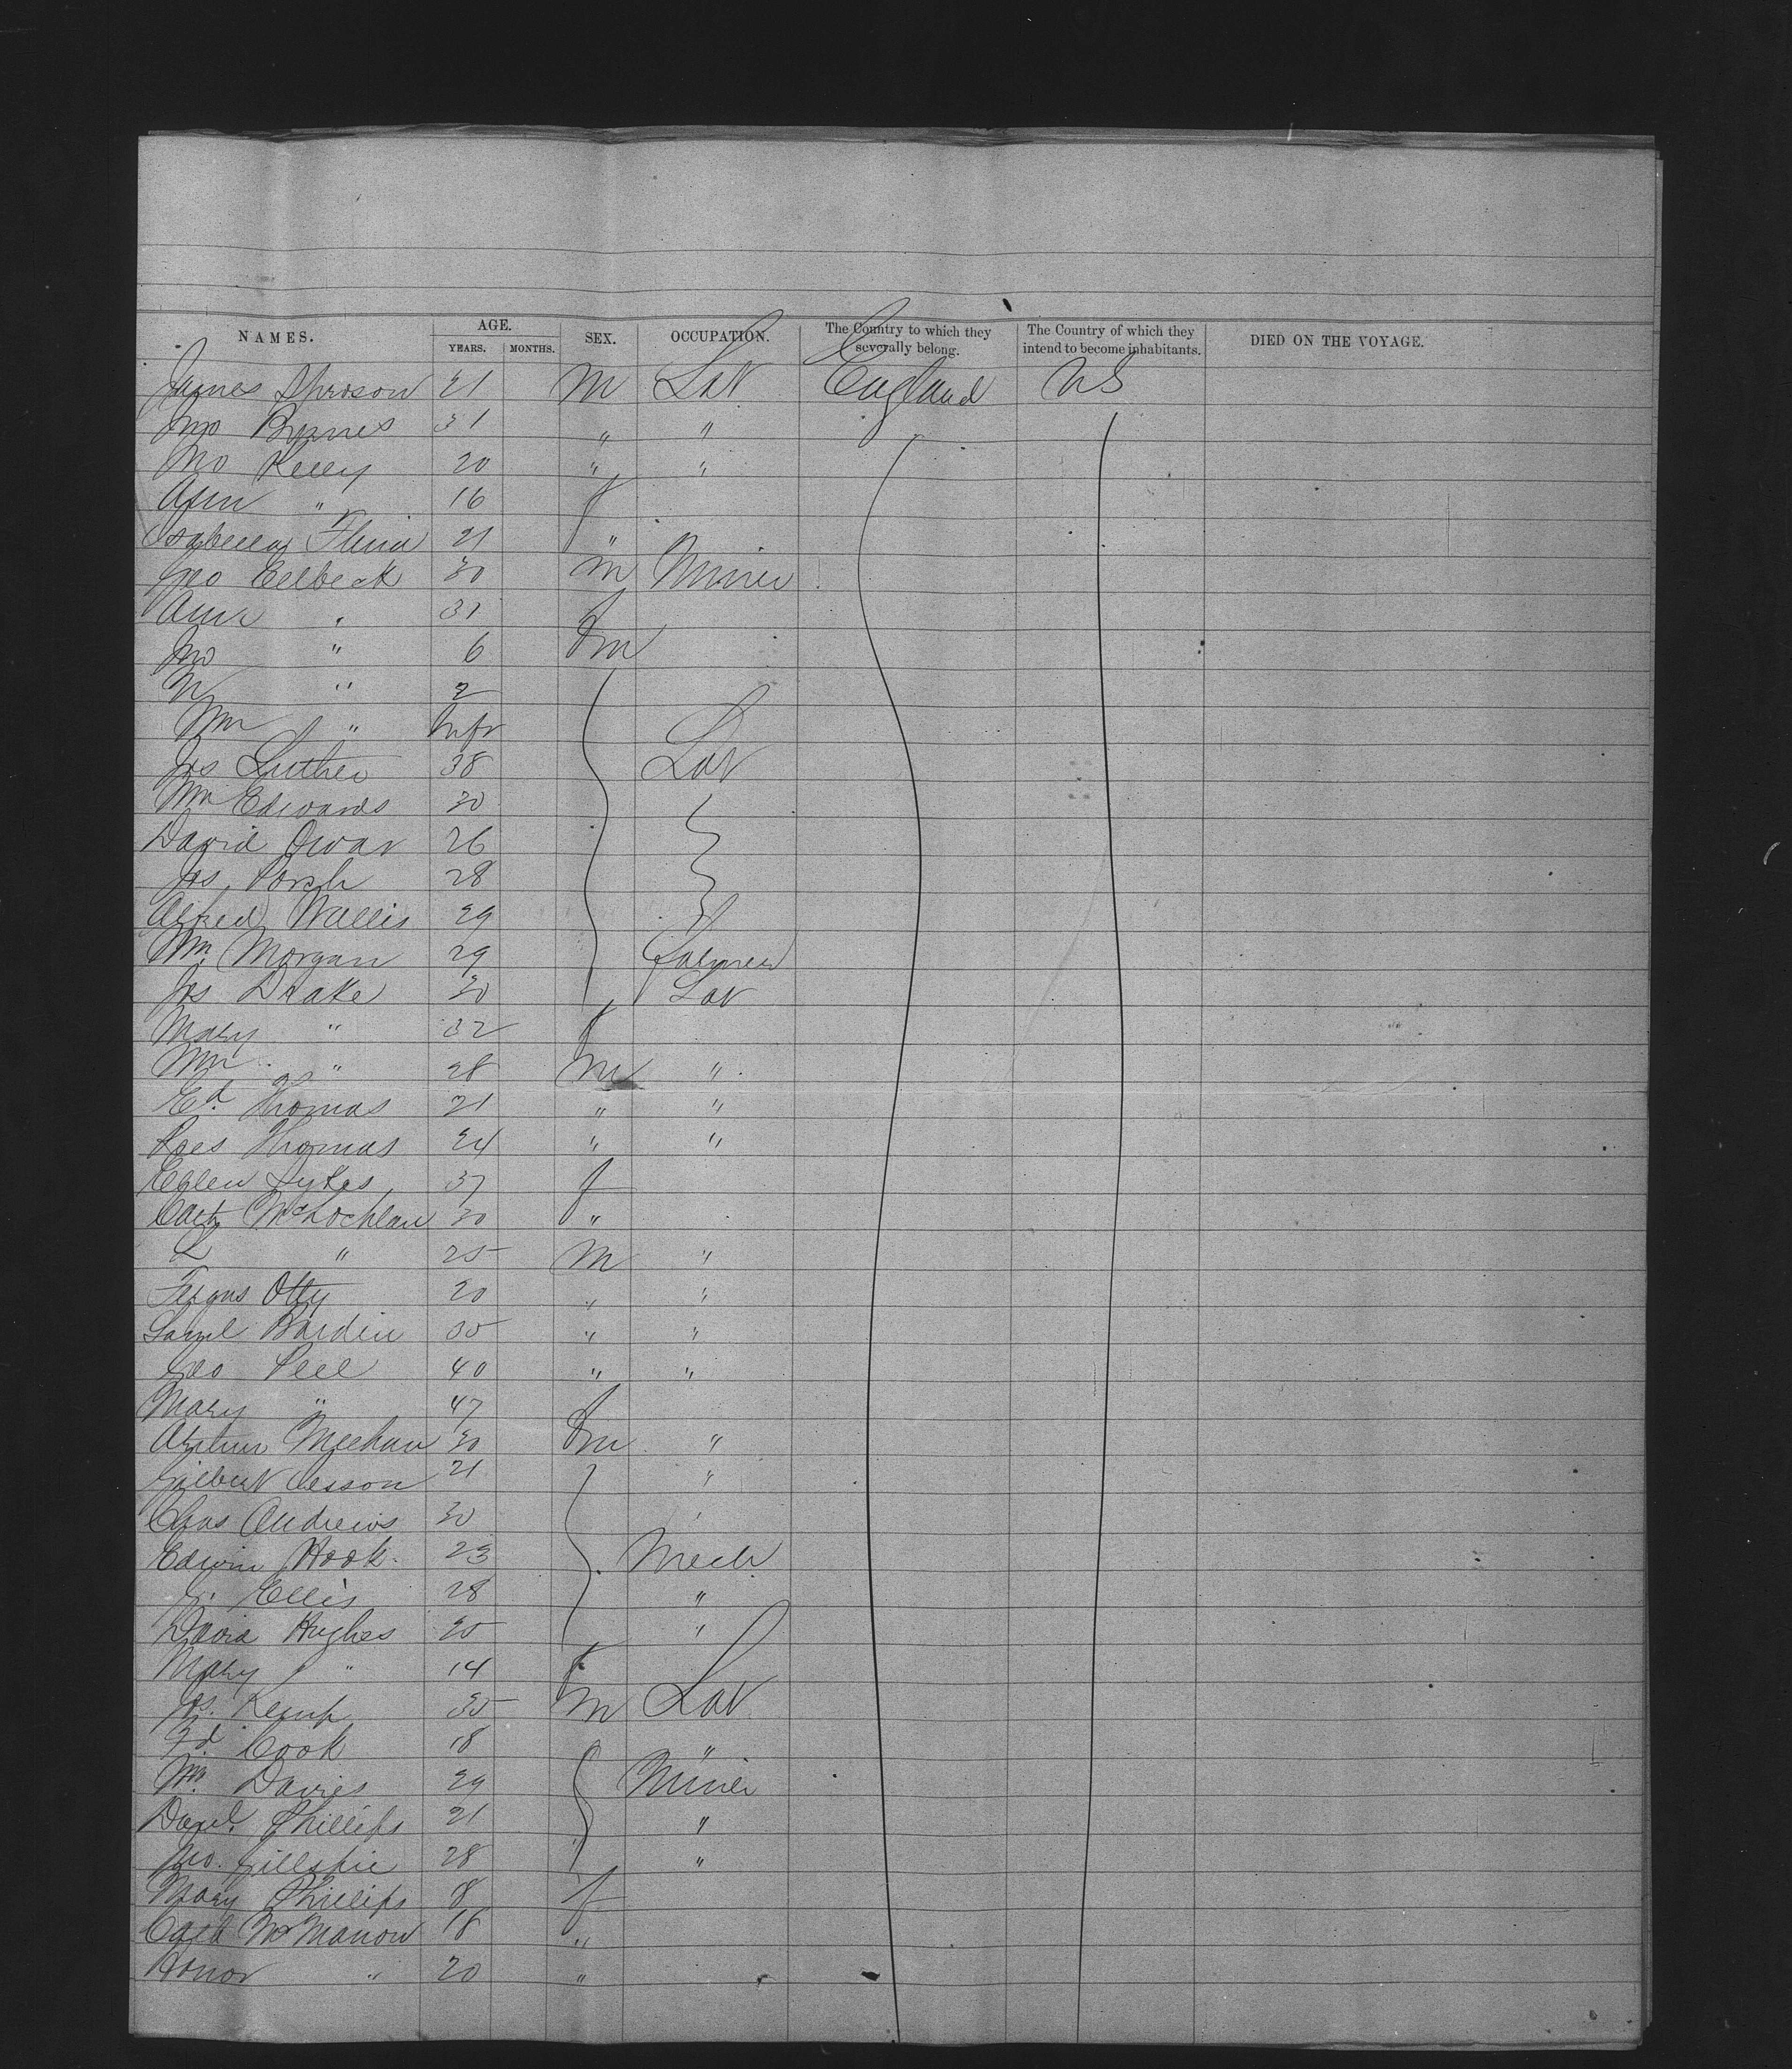 NAMES. AGE. YEARS. MONTHS. SEX. OCCUPATION. The Country to which they severally belong. The Country of which they intend to become inhabitants. DIED ON THE VOYAGE.
James 21 M Lab England US
Jno Byrnes 31 " "
Jno Kelly 20 " "
Ann " 16 f
Isabella 21 "
Geo Eelbeck 30 m Miner
Ann " 31 f
Jno " 6 m
W " 2
Wm " Inft
Jos Luther 38 Lab
Wm Edwards 30
David 26
Jos 28
Alfred Wallis 29
Wm Morgan 29 Farmer
Jos Drake 30 Lab
Mary " 32 f
Wm " 28 M "
Ed. Thomas 21 " "
Rees Thomas 24 " "
Ellen Sykes 37 f
Cath McLochlan 30 "
L " 25 M "
Fergus Otty 20 " "
Saml Bardin 35 " "
Geo Peel 40 " "
Mary " 47 f
Arthur Meehan 30 m "
Gilbert 21 "
Chas Andrews 30 "
Edwin Hook. 23 Mech
G. Ellis 28 "
David Hughes 25 "
Mary " 14 f
Js. Kemp 35 M Lab
Fd. Cook 18 "
Wm. Davies 29 Miner
Danl. Phillips 21 "
Jno. Gillspie 28 "
Mary Phillips 8 f
Cath McManow 18 "
Honor " 20 "